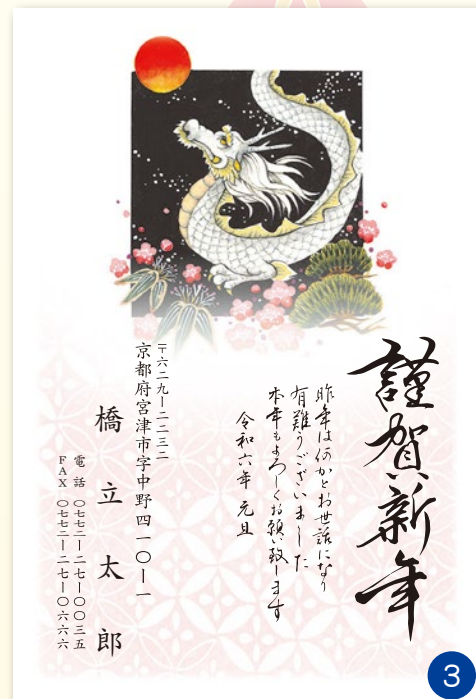 謹賀新年
昨年は何かとお世話になり
有難うございました
本年もよろしくお願い致します
令和六年 元旦
〒六二九ー二二三二
京都府宮津市字中野四一〇ー一
橋立太郎
電話 〇七七二ー二七ー〇〇三五
FAX 〇七七二ー二七ー〇六六六
3